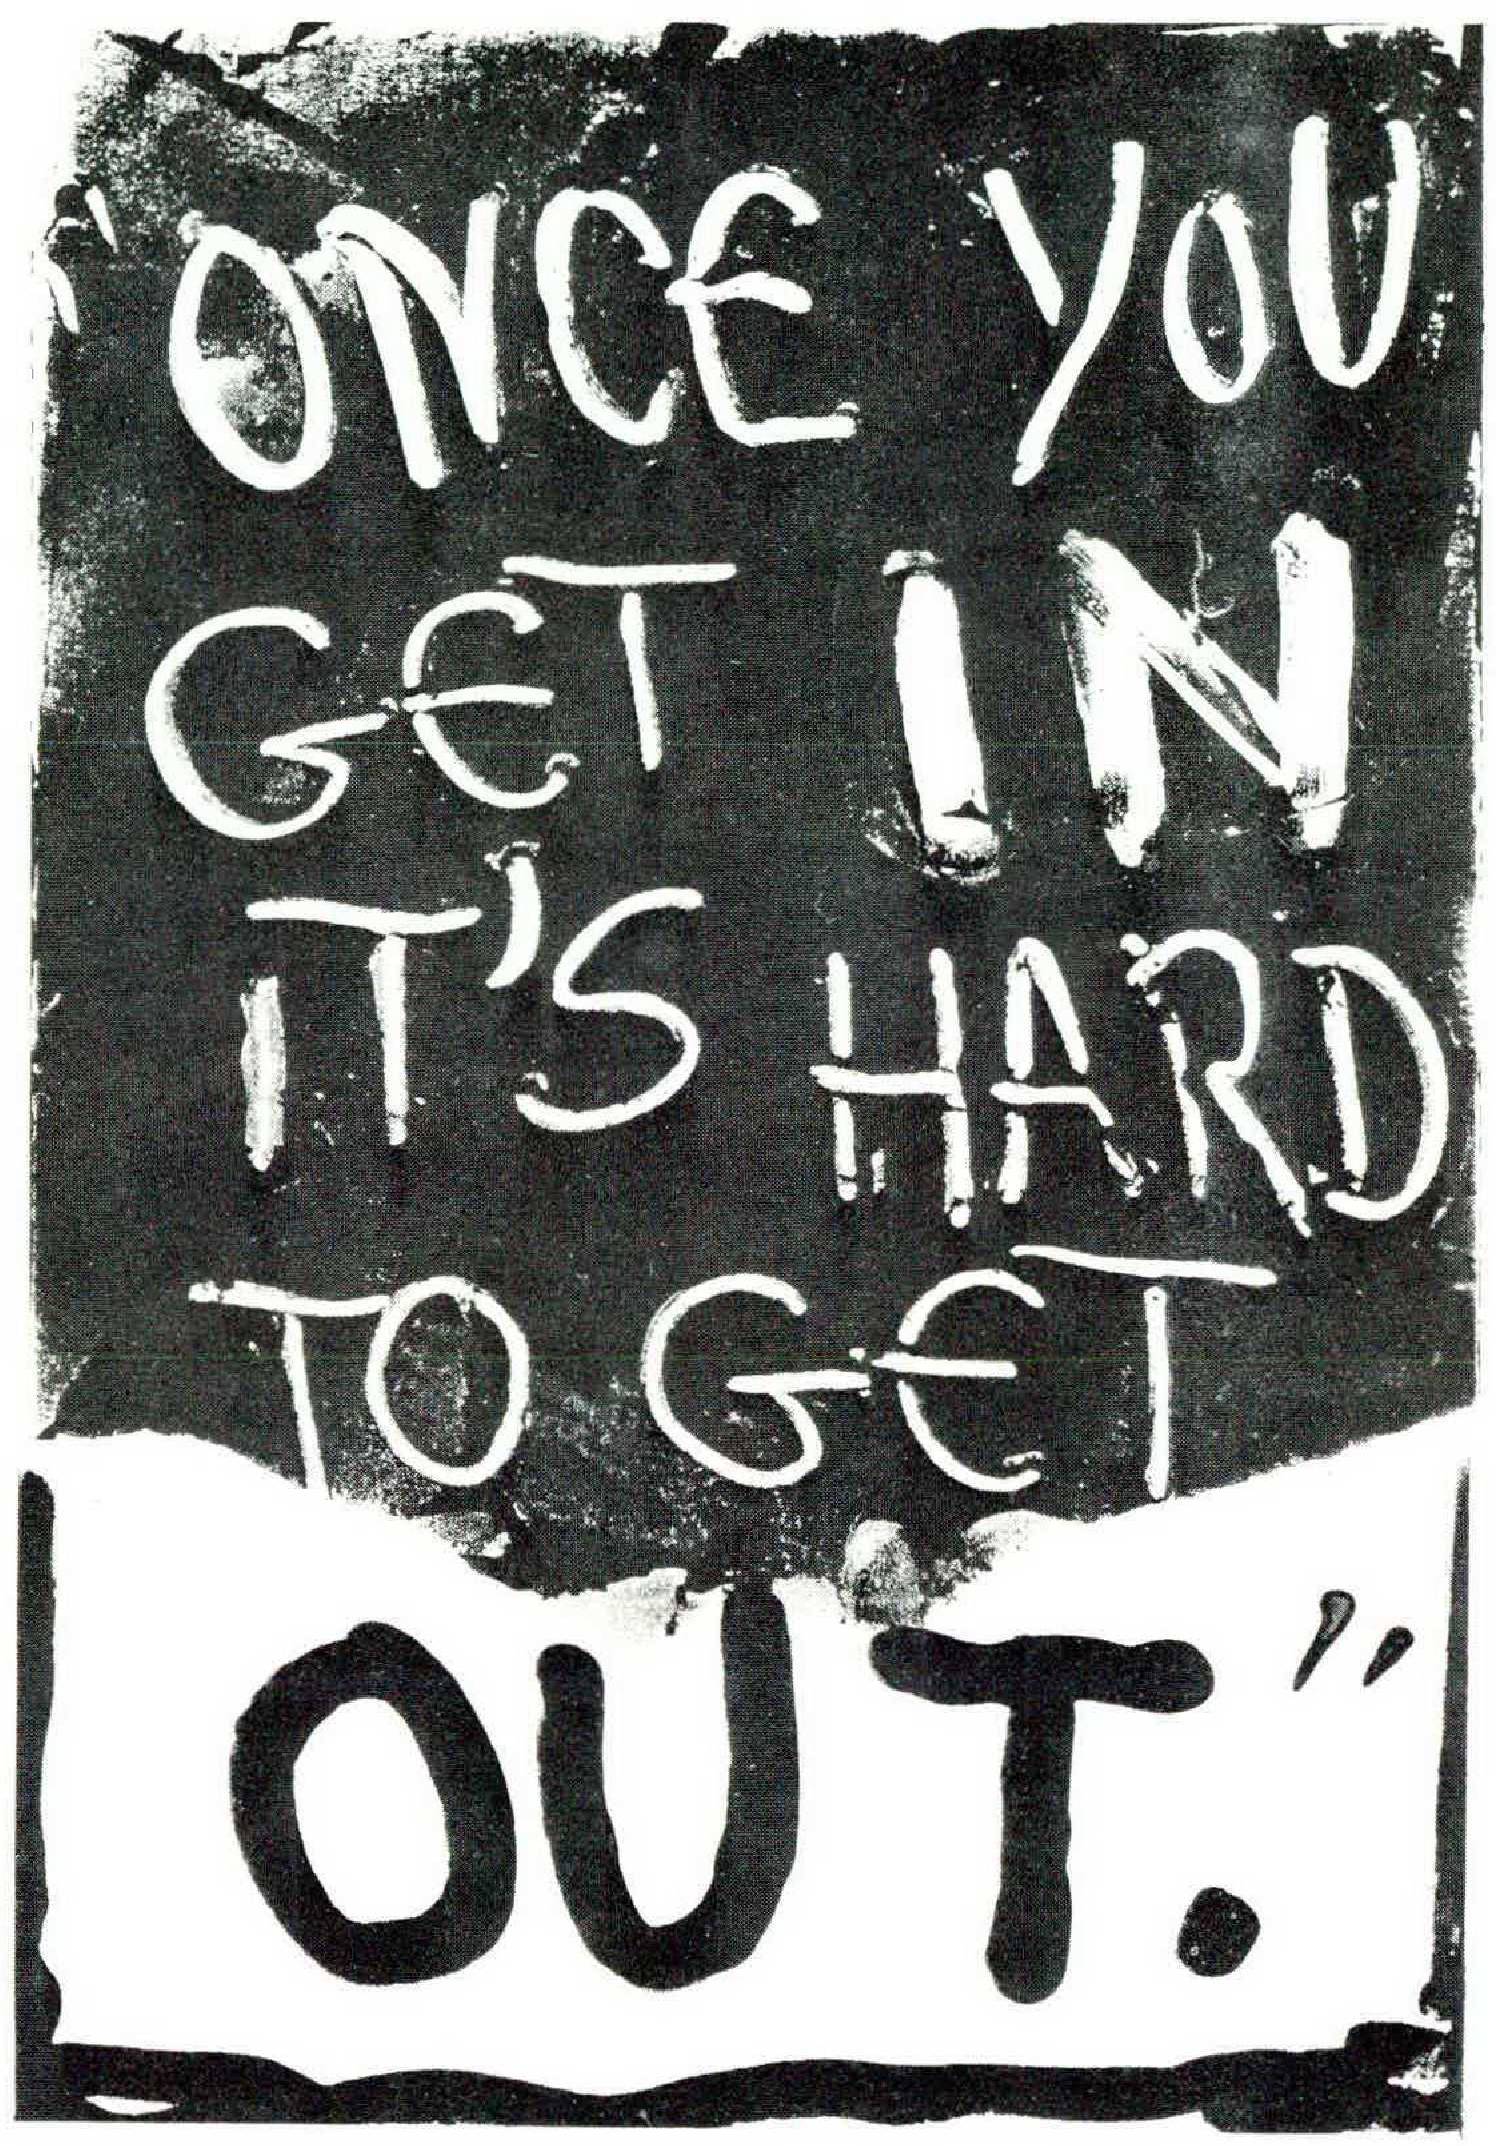 "ONCE YOU
GET IN
IT'S HARD
TO GET
OUT."